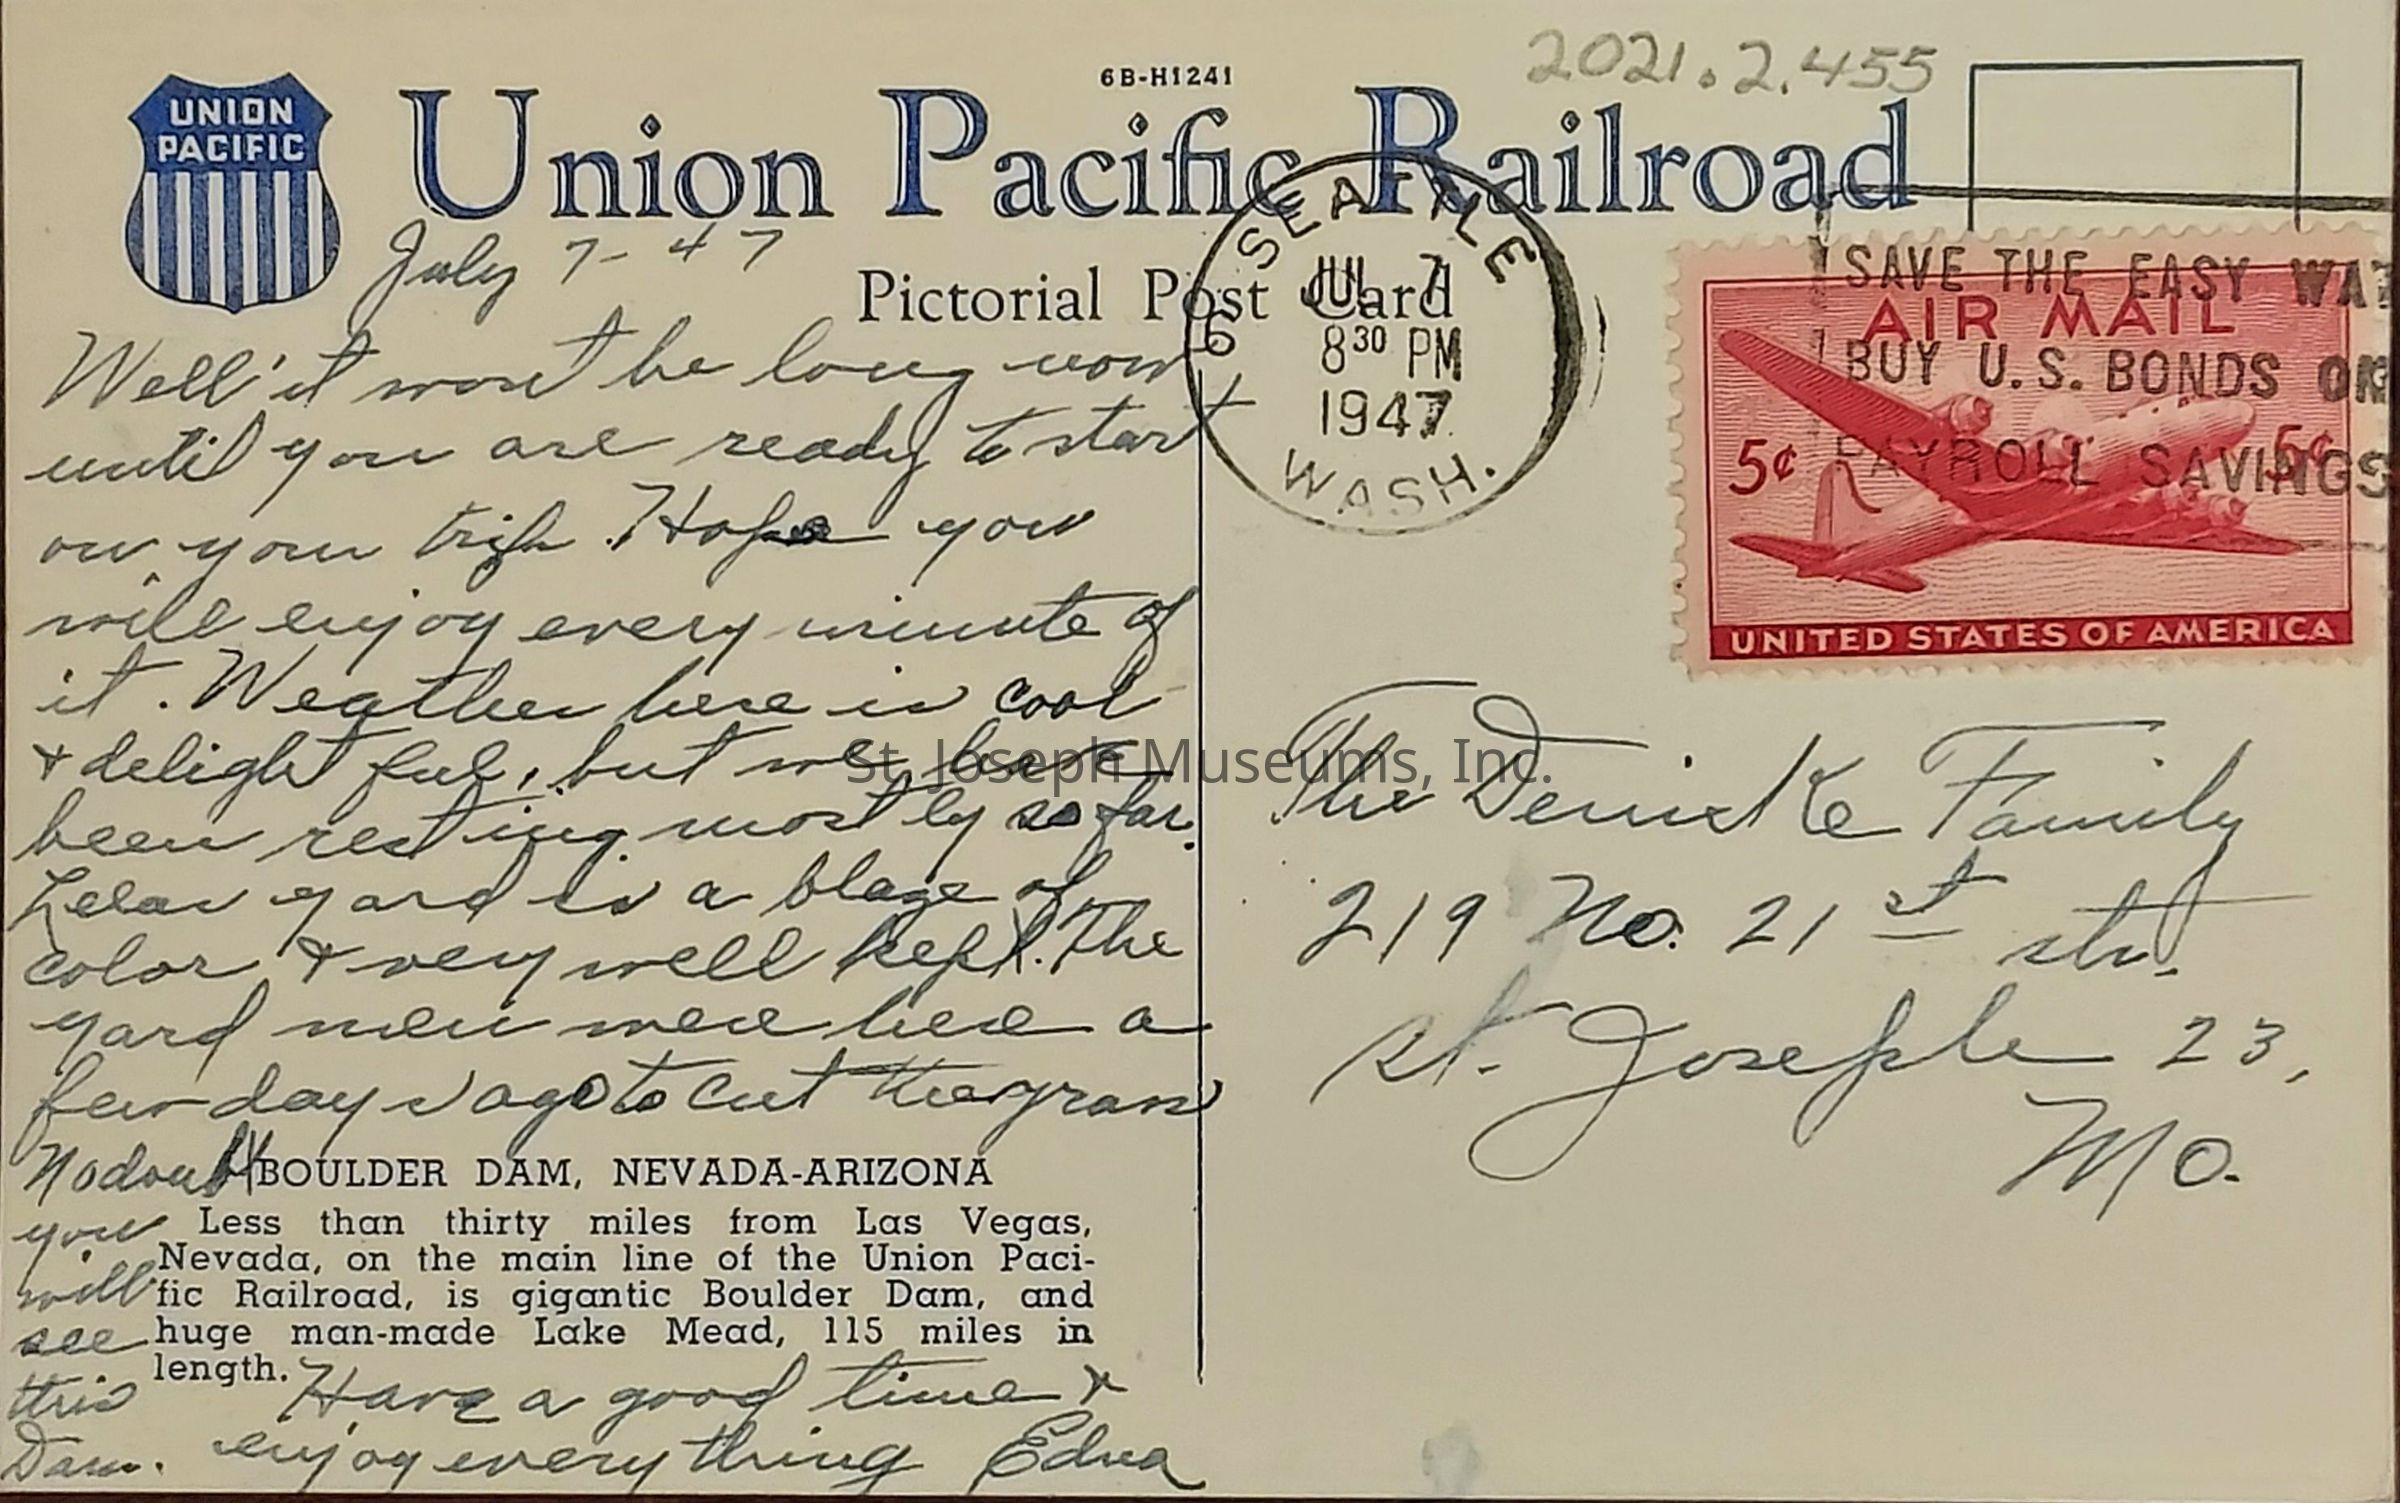 6B-H1241
2021.2.455
UNION
PACIFIC
Union Pacific Railroad
Pictorial Post Card
SEATTLE
JUL 7
8 30 PM
1947
WASH.
6
SAVE THE EASY WAY
BUY U.S. BONDS OR
PAYROLL SAVINGS
AIR MAIL
5¢ 5¢
UNITED STATES OF AMERICA
July 7-47
Well it wont be long now
until you are ready to start
on your trip. Hope you
will enjoy every minute of
it. Weather here is cool
& delightful, but we have
been resting mostly so far.
yard is a blaze of
color & very well kept. The
yard men were here a
few days ago to cut the grass
No doubt
you
will
see
this
Dam.
BOULDER DAM, NEVADA-ARIZONA
Less than thirty miles from Las Vegas,
Nevada, on the main line of the Union Paci-
fic Railroad, is gigantic Boulder Dam, and
huge man-made Lake Mead, 115 miles in
length.
Have a good time &
enjoy everything Edna
The Family
219 No. 21st str.
St. Joseph 23,
Mo.
St. Joseph Museums, Inc.